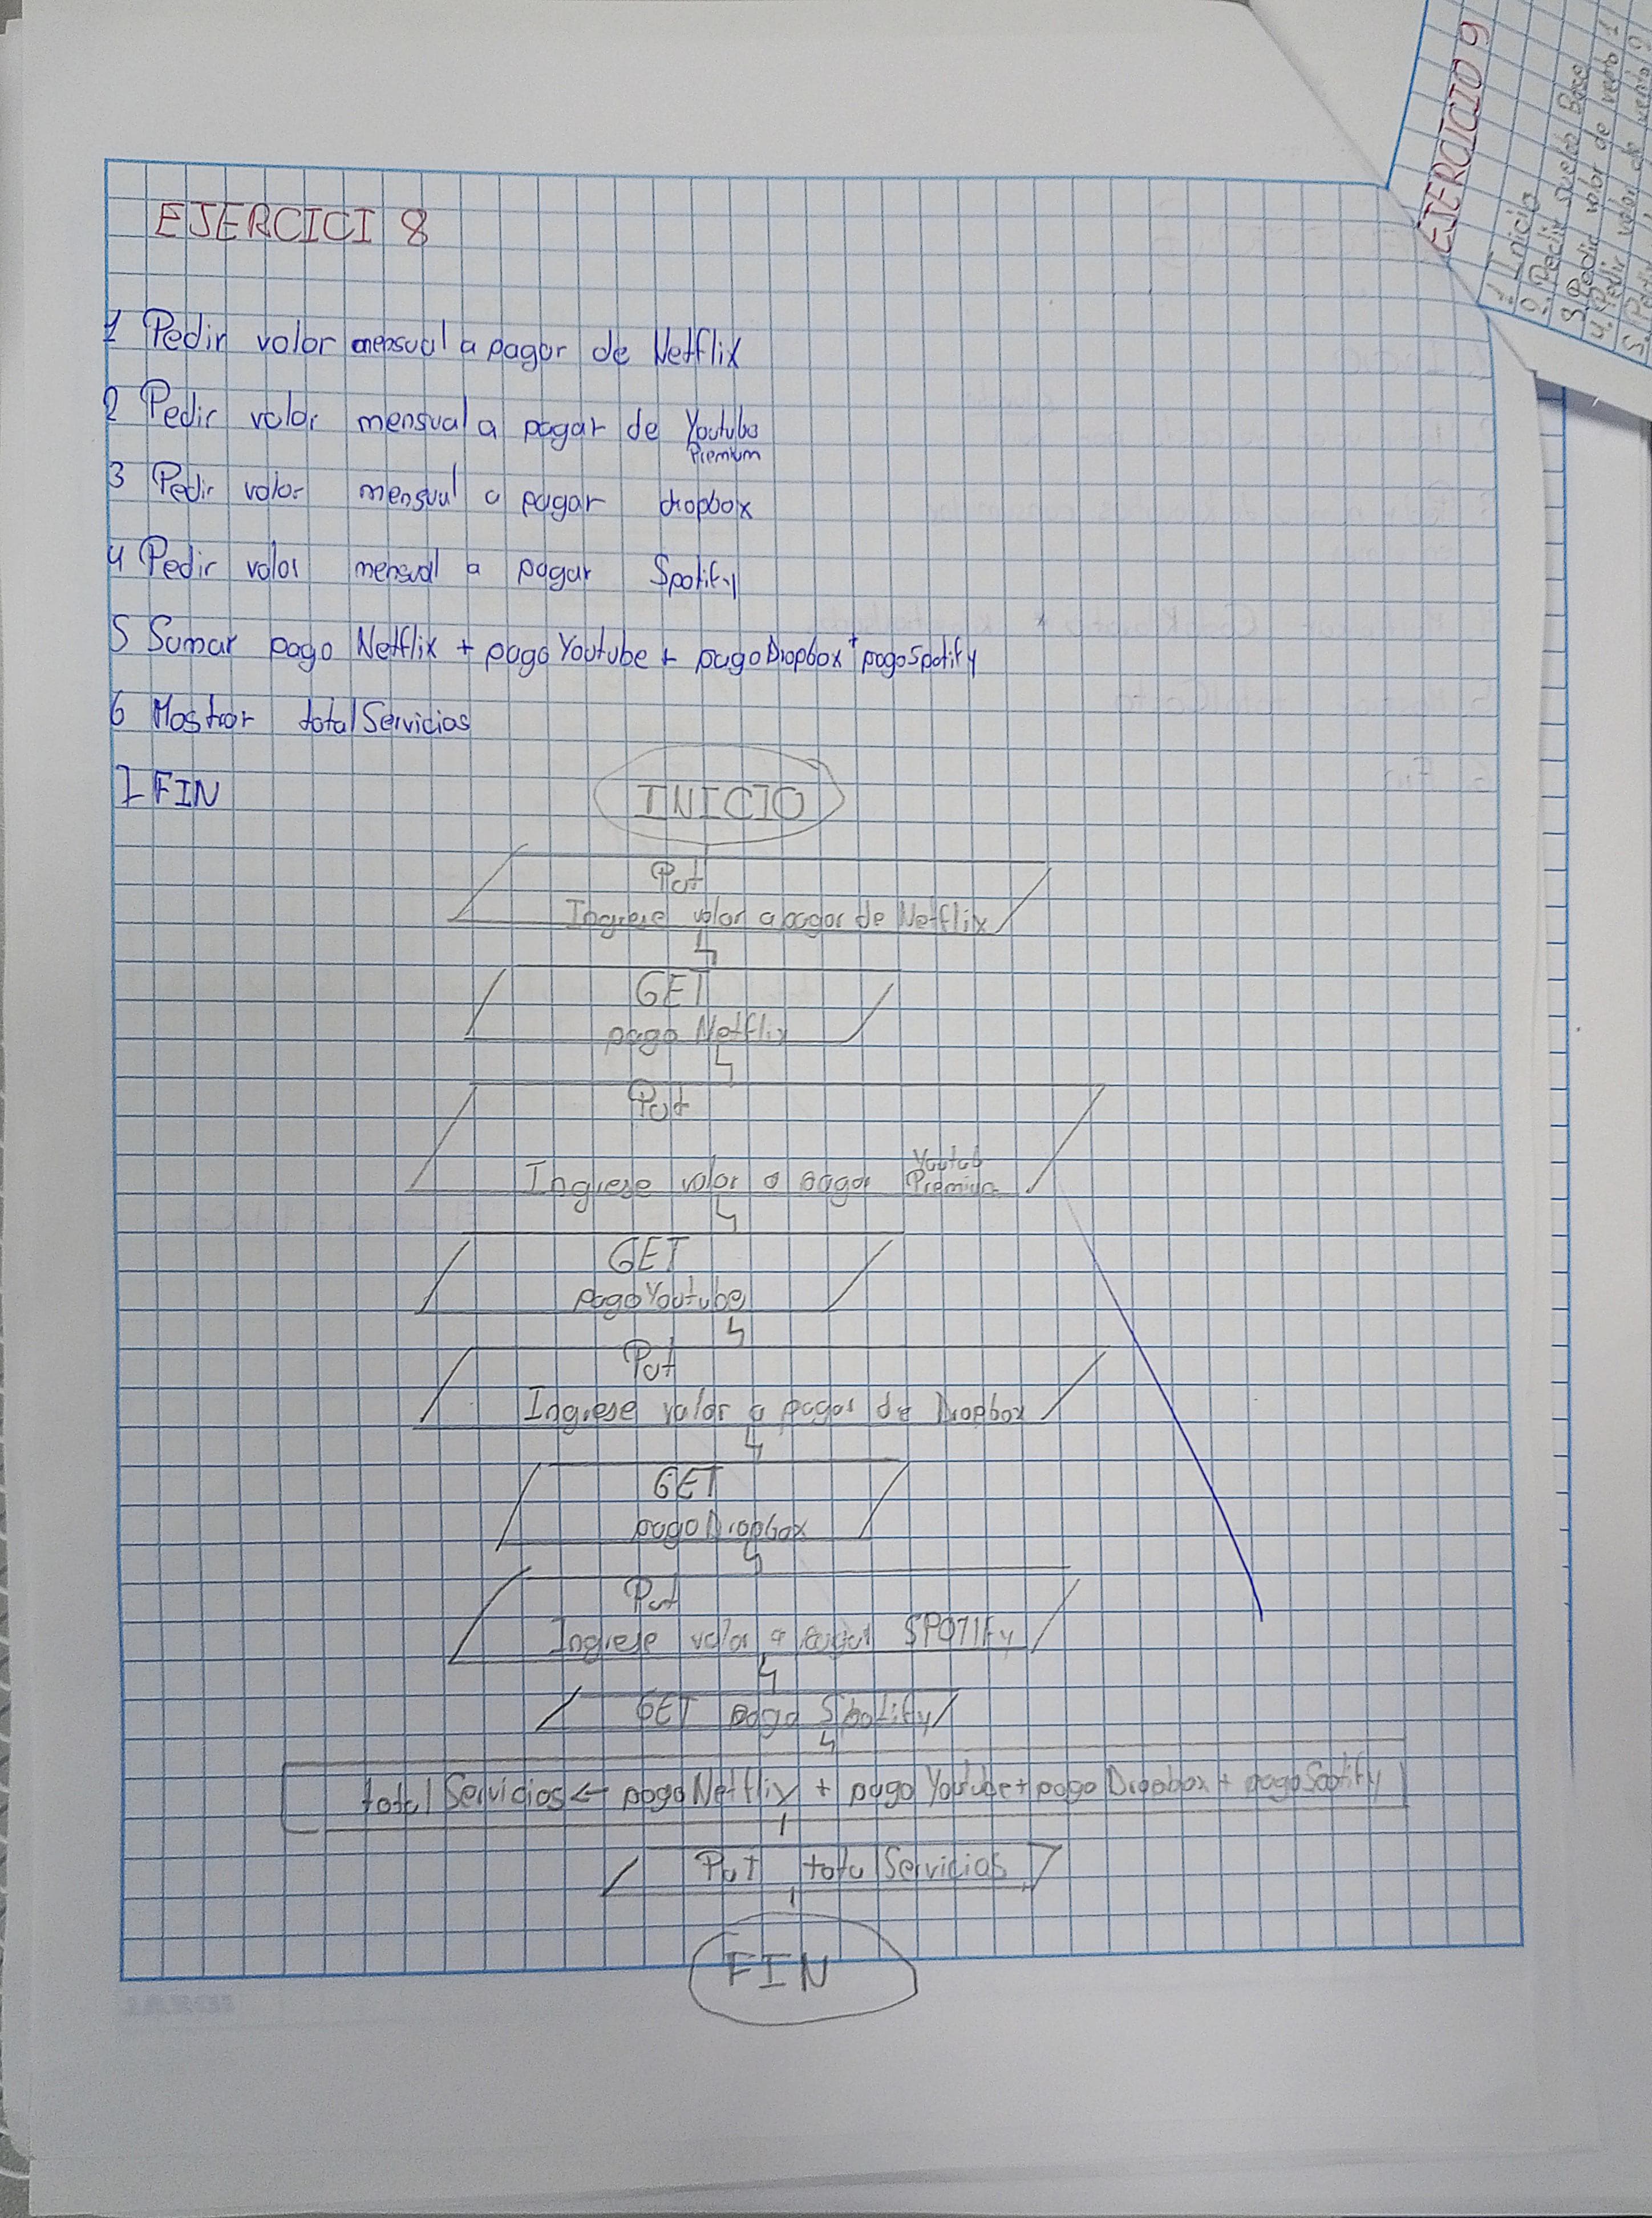 EJERCICI 8
1 Pedir valor mensual a pagar de Netflix
2 Pedir valor mensual a pagar de Youtube
Premium
3 Pedir valor mensual a pagar dropbox
4 Pedir valor mensual a pagar Spotify
5 Sumar pago Netflix + pago Youtube + pagoDropbox + pagoSpotify
6 Mostrar totalServicios
7 FIN
INICIO
Put
Ingrese valor a pagar de Netflix
GET
pago Netflix
Put
Ingrese valor a pagar Youtub
Premium
GET
pagoYoutube
Put
Ingrese valor a pagar de Dropbox
GET
pagoDropbox
Put
Ingrese valor a pagar SPOTIFY
GET pago Spotify
totalServicios ← pagoNetflix + pagoYoutube + pagoDropbox + pagoSpotify
Put totalServicios
FIN
EJERCICIO 9
1. Inicio
2. Pedir sueldo Base
3. Pedir valor de venta 1
4. Pedir valor de venta 2
5. Pedir